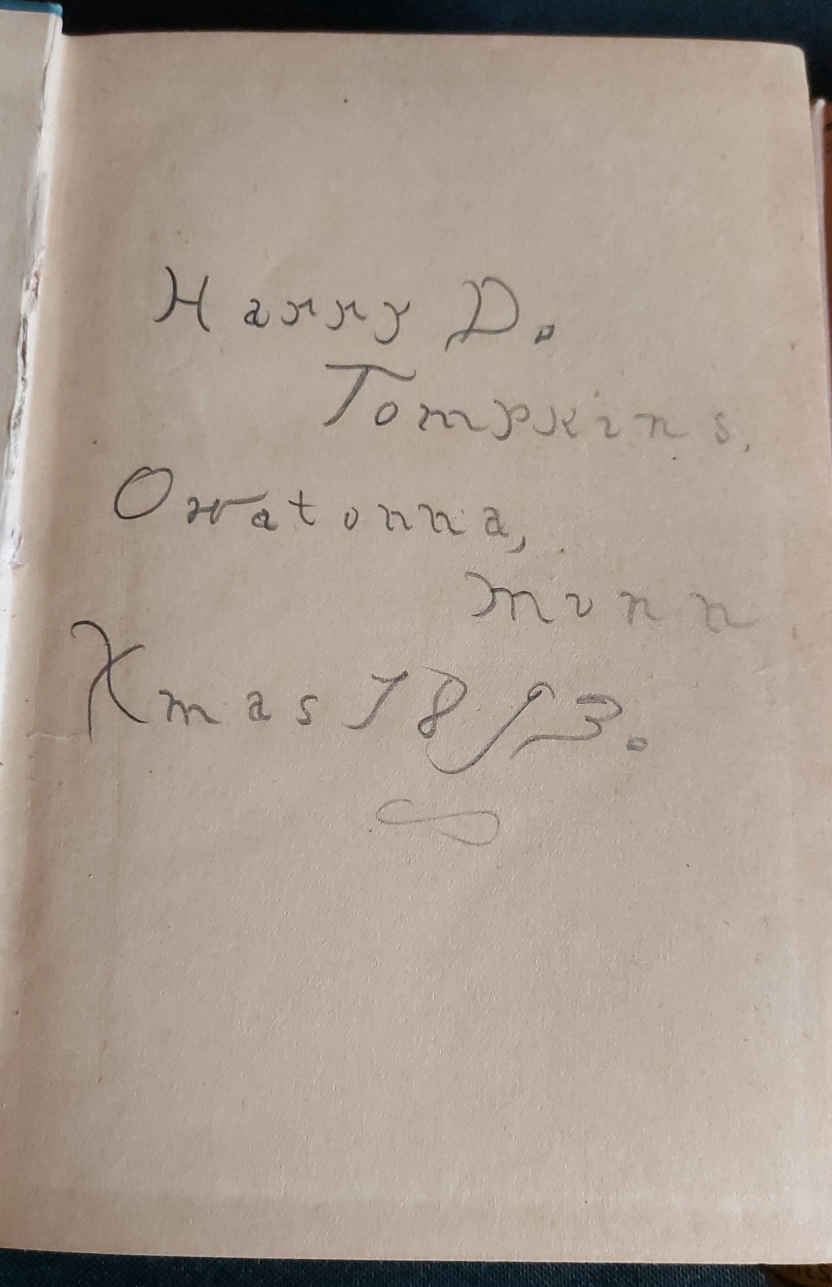 Harry D.
Tompkins,
Owatonna,
Minn
Xmas 1893.